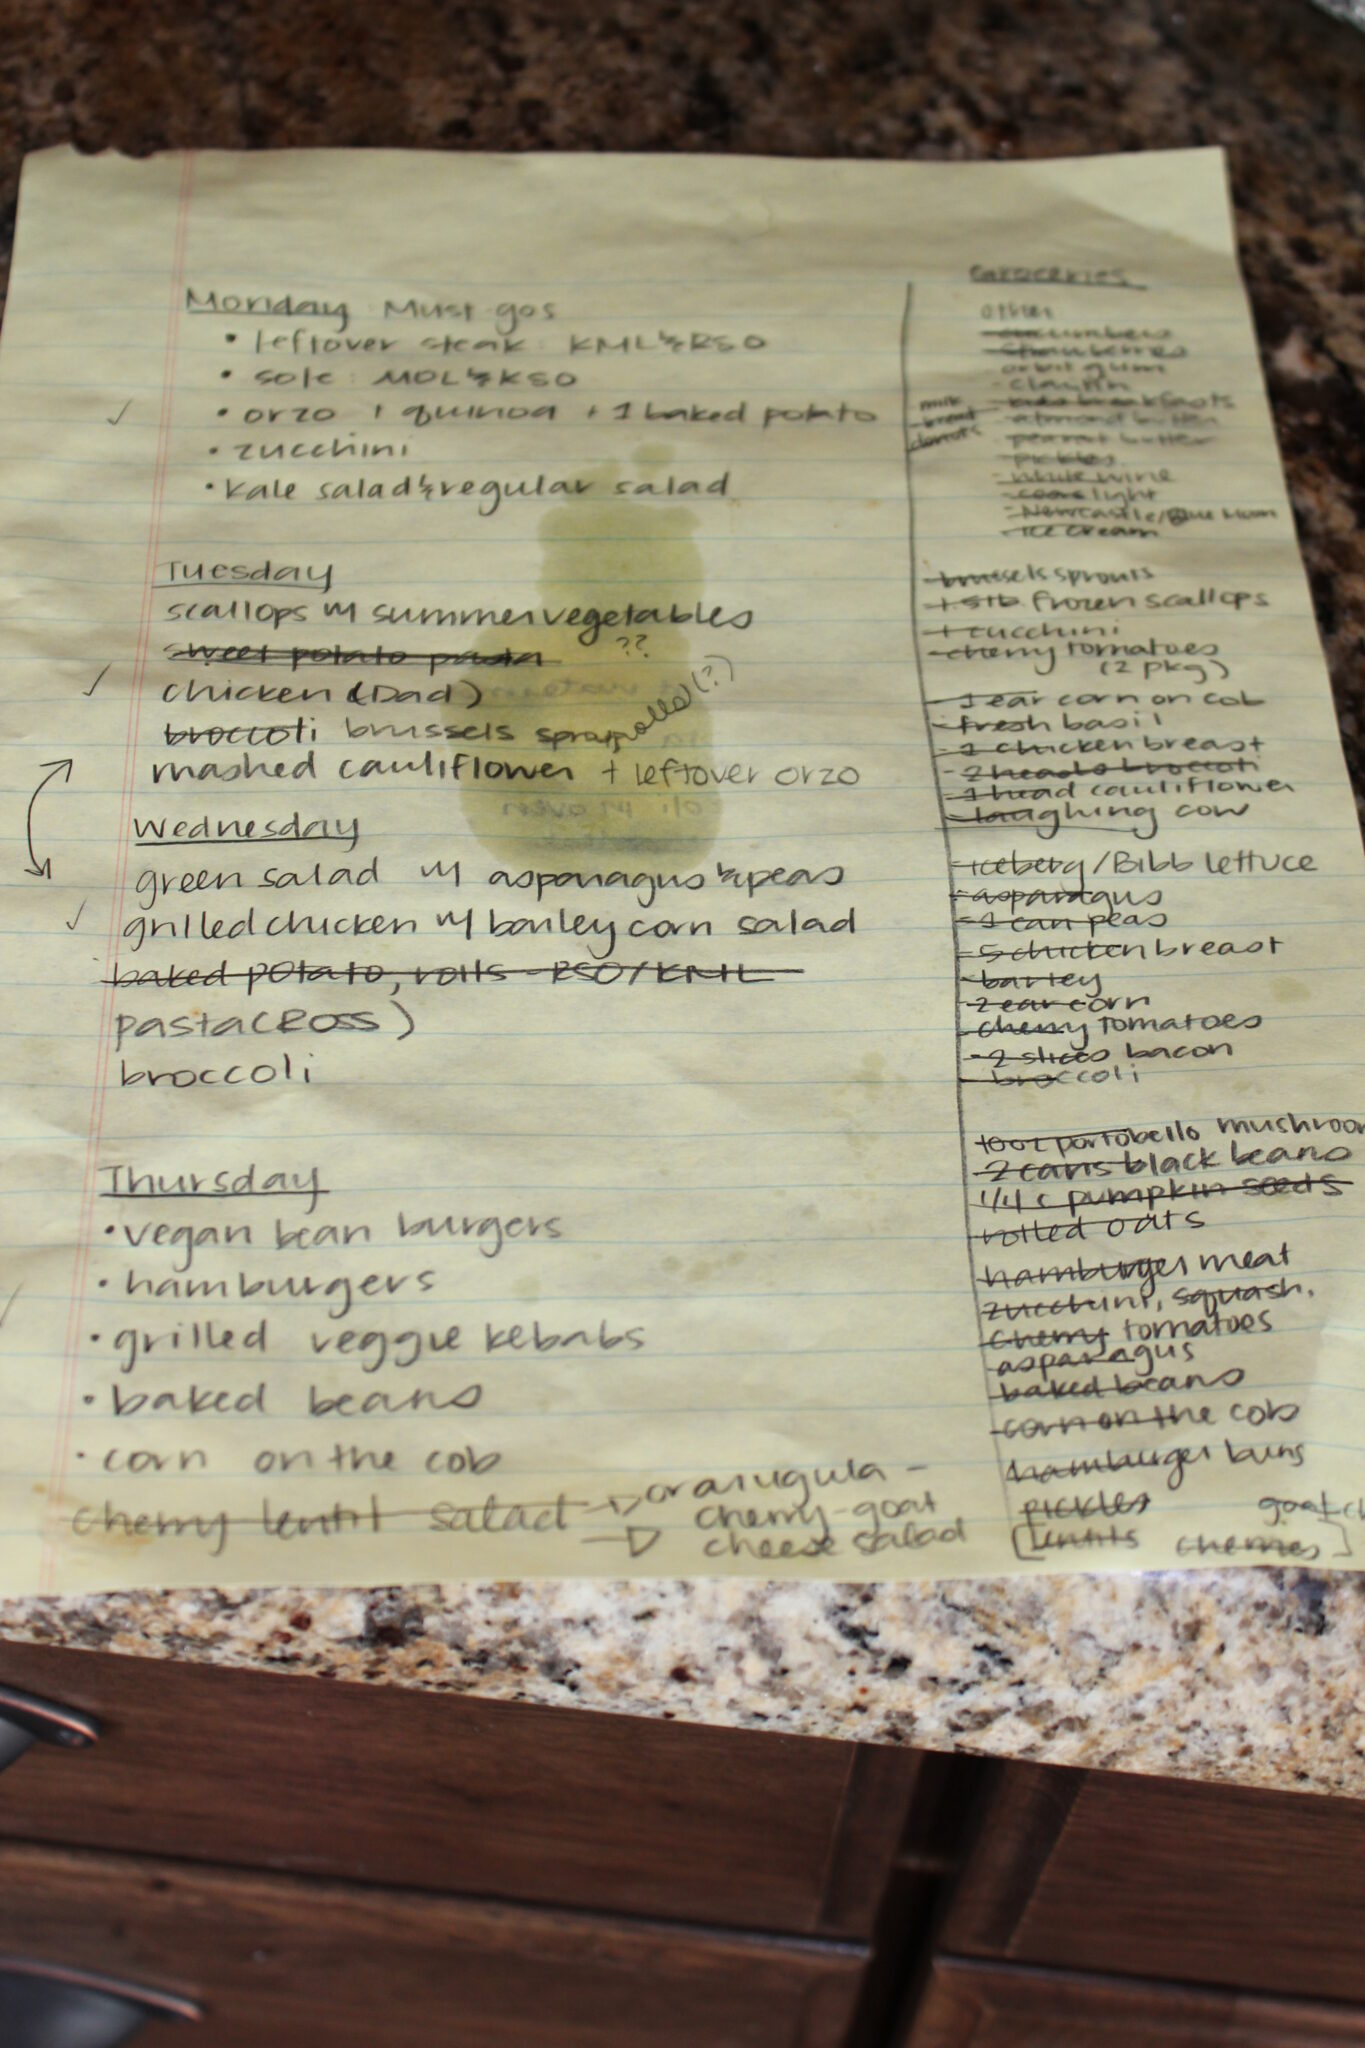 Monday Must-gos
• leftover steak: KML & RSO
• sole: MOL & KSO
• orzo + quinoa + 1 baked potato
• zucchini
• kale salad & regular salad
Tuesday
scallops w/ summer vegetables
sweet potato pasta ??
chicken (Dad)
broccoli brussels
mashed cauliflower + leftover orzo
Wednesday
green salad w/ asparagus & peas
grilled chicken w/ barley corn salad
baked potato, rolls - RSO/KML
pasta (ROSS)
broccoli
Thursday
• vegan bean burgers
• hamburgers
• grilled veggie kebabs
• baked beans
• corn on the cob
cherry lentil salad → orarugula -
→ cherry-goat
cheese salad
Groceries
other
- cucumbers
- strawberries
- orbit gum
- claritin
- kids breakfasts
- almond butter
- peanut butter
- pickles
- white wine
- coors light
- Newcastle/Blue Moon
- ice cream
milk
bread
donuts
- brussels sprouts
frozen scallops
zucchini
- cherry tomatoes
(2 pkg)
- 1 ear corn on cob
- fresh basil
- 1 chicken breast
- 2 heads broccoli
- 1 head cauliflower
- laughing cow
- iceberg/Bibb lettuce
- asparagus
- 1 can peas
- 5 chicken breast
- barley
- 2 ear corn
- cherry tomatoes
- 2 slices bacon
- broccoli
10oz portobello mushroom
2 cans black beans
1/4 c pumpkin seeds
rolled oats
hamburger meat
zucchini, squash,
cherry tomatoes
asparagus
baked beans
corn on the cob
hamburger buns
pickles goat ch
[lentils cherries]